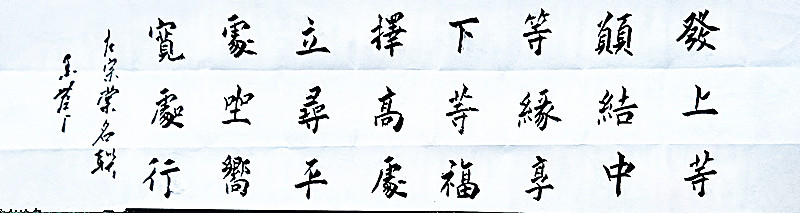 發上等
願結中
等緣享
下等福
擇高處
立尋平
處坐嚮
寬處行
左宗棠名聯